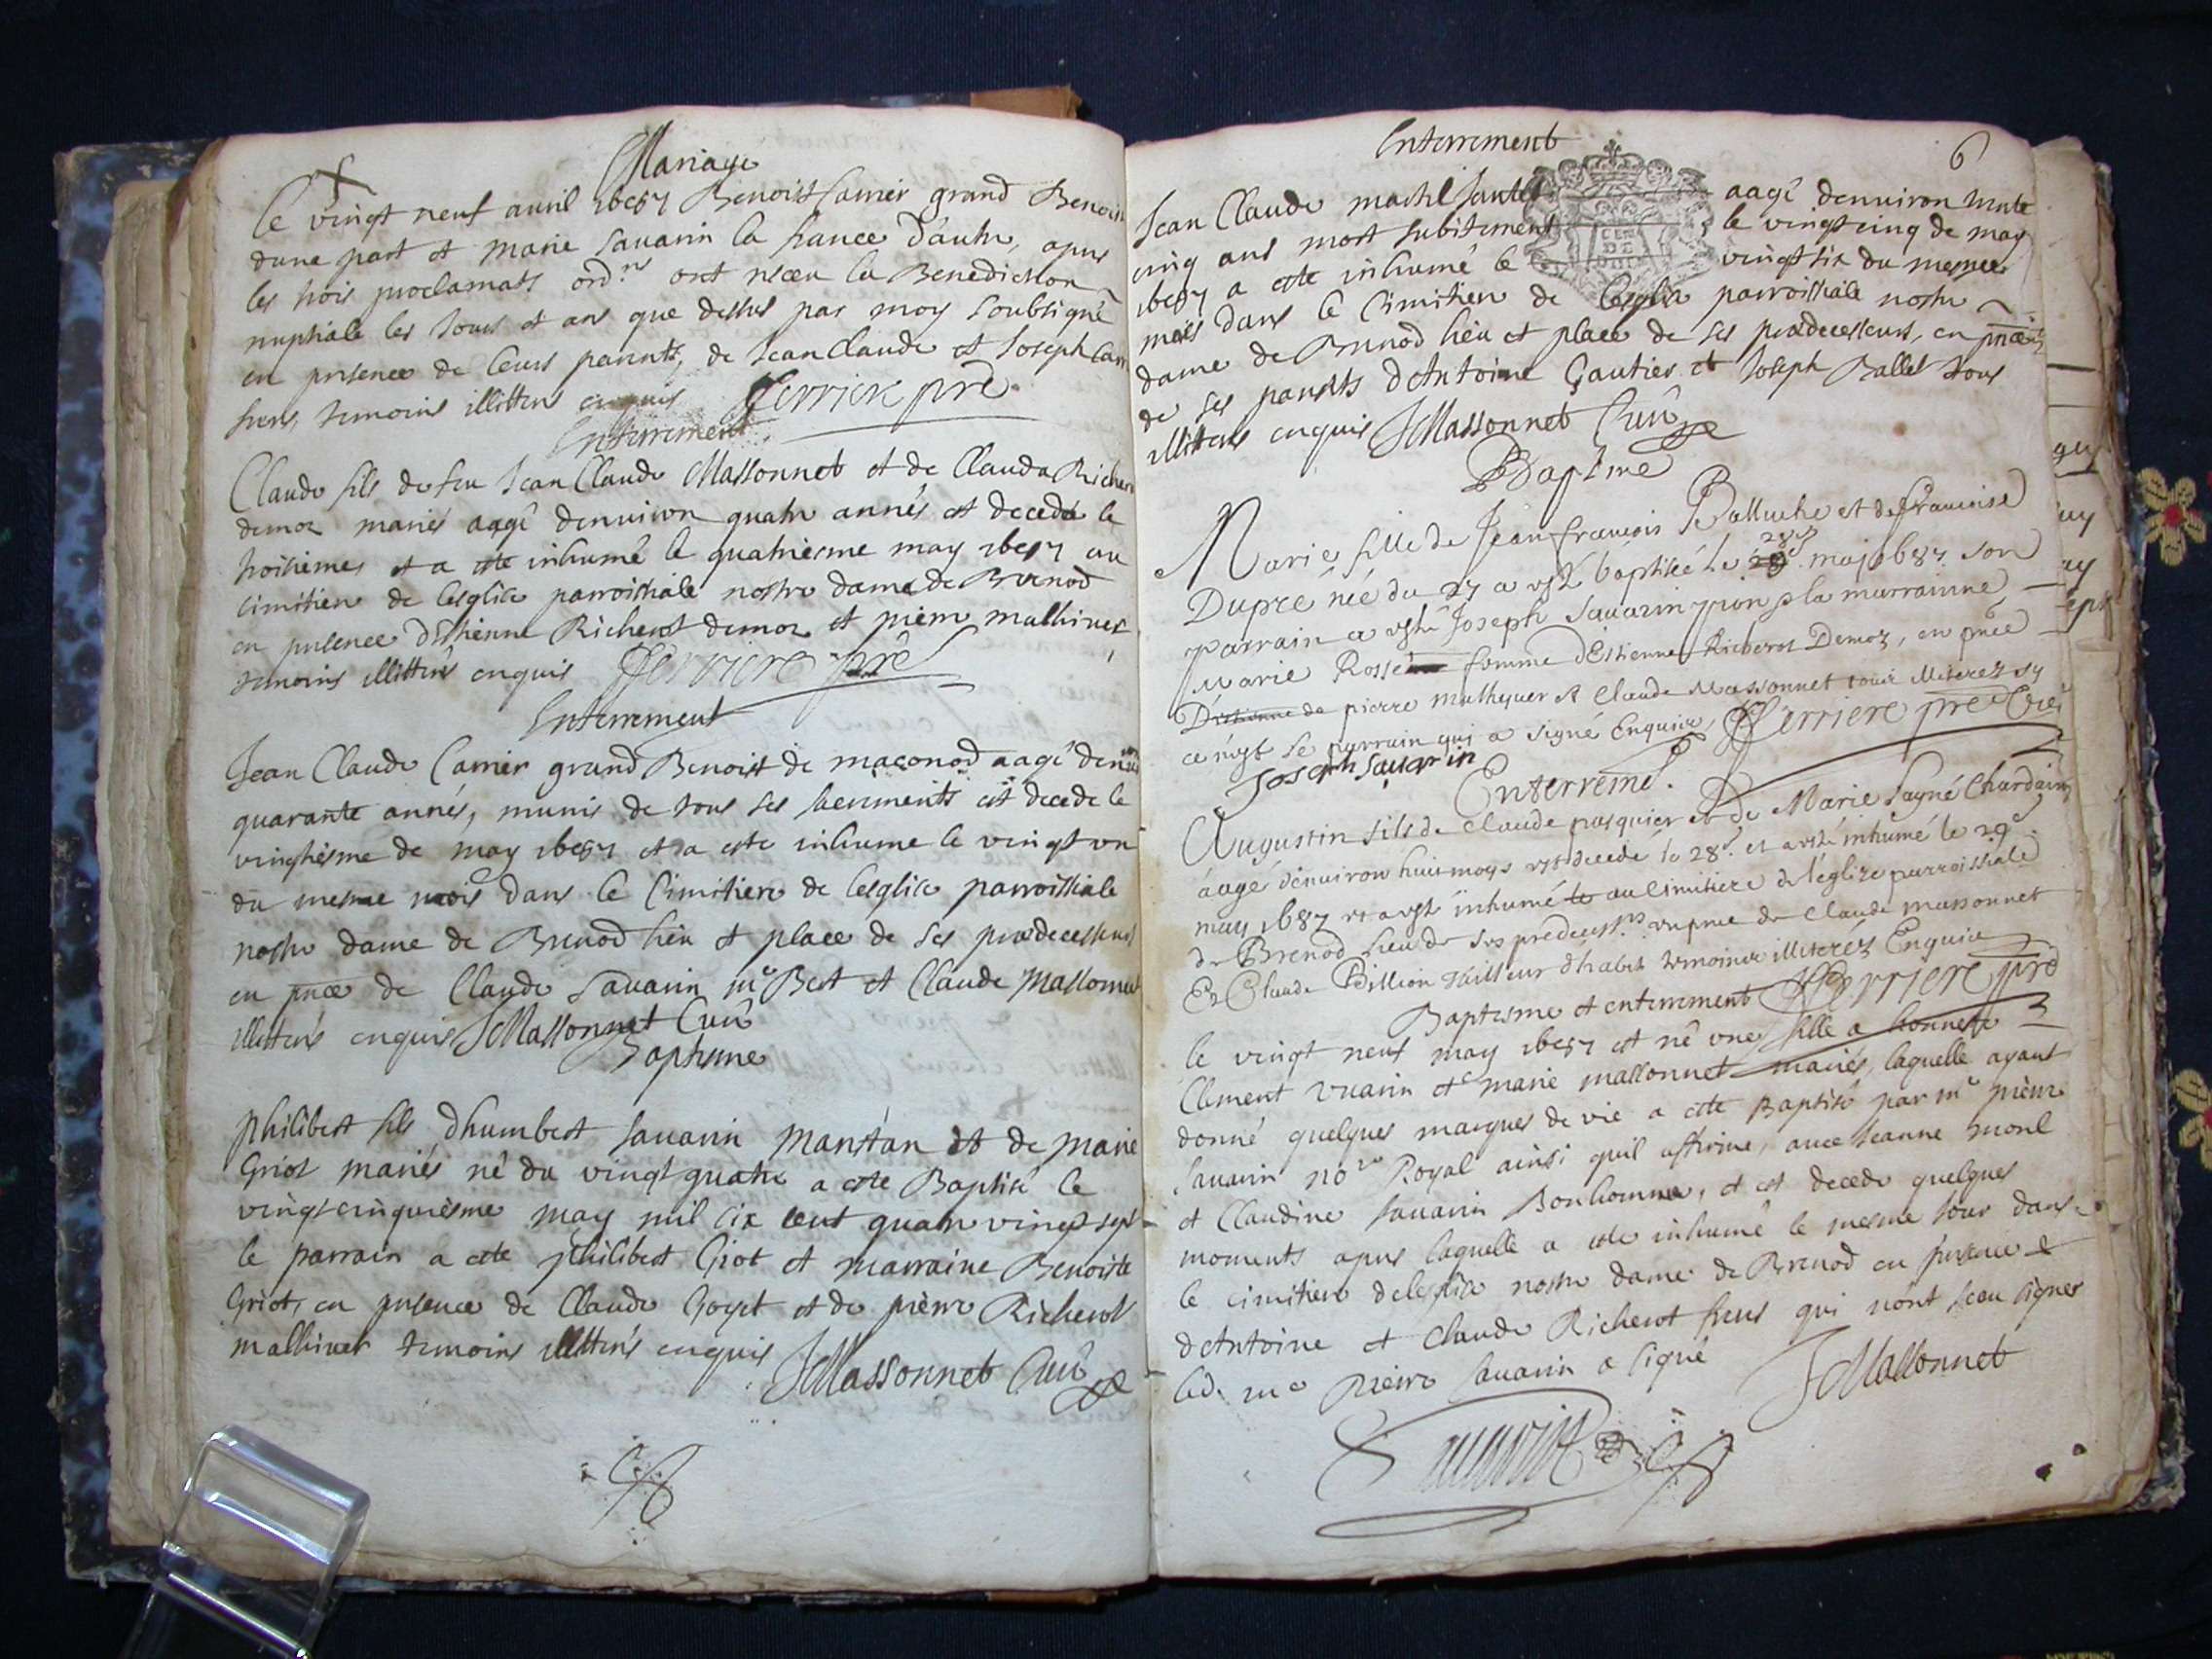 Mariage
Le vingt neuf auril 1687 Benoist Carrier grand Benoist
dune part et marie sauarin la france dautre, apres
les trois proclamats ord.res ont receu la Benediction
nuptiale les jours et ans que dessus par moy soubsigné
en presence de leurs parents, de Jean Claude et Joseph Carr
freres, temoins illitteres enquis Ferriere pre
Enterrement
Claude fils de feu Jean Claude Massonnet et de Clauda Richero
demoz mariés aagé denuiron quatre annés et decedé le
troisiemes et a esté inhumé le quatriesme may 1687 au
cimitiere de lesglise parroissiale nostre dame de Brenod
en presence destienne Richerot demoz et pierre mathiuer
temoins illitterés enquis Ferriere pre
Enterrement
Jean Claude Carrier grand Benoist de maconod aagé denui
quarante annés, munis de tous ses sacrements est decede le
vingtiesme de may 1687 et a esté inhume le vingt un
du mesme mois dans le Cimitiere de lesglise parroissiale
nostre dame de Brenod lieu et place de ses prædecesseurs
en pnce de Claude Sauarin me Bert et Claude Massonnet
illitterés enquis JMassonnet Curé
Baptisme
philibert fils dhumbert sauarin mantan et de marie
Griot mariés né du vingt quatre a esté Baptisé le
vingtcinquiesme may mil six cent quatre vingt sept
le parrain a esté philibert Griot et marraine Benoiste
Griot, en presence de Claude Goyet et de pierre Richerot
mathiuer temoins illitterés enquis
JMassonnet Curé
Enterrement
6
Jean Claude aagé denuiron trente
cinq ans mort subitement le vingt cinq de may
1687 a esté inhumé le vingt six du mesme
mois dans le Cimitiere de lesglise parroissiale nostre
dame de Brenod lieu et place de ses prædecesseurs, en pnce
de ses parents dAntoine Gautier et Joseph Ballet tous
illitterés enquis JMassonnet Curé
Baptme
Marie fille de Jean francois Balluche et de francoise
Dupré née du 27 a esté baptisée le 28e may 1687 son
parrain a esté Joseph Sauarin pion & la marrainne
Marie Rosse femme dEstienne Richerot Demoz, en pnce
Destienne de pierre mathyuer et Claude Massonnet touts illiterez sy
ce n'est le parrain qui a signé Enquis, Ferriere pre Vre
Joseph Sauarin
Enterremt.
Augustin fils de Claude pasquier et de Marie Sagné Chardain
aagé denuiron huit moys est decede le 28e. et a esté inhumé le 29e
may 1687 et a esté inhumé le au Cimitiere de léglize parroissiale
de Brenod lieu de ses predecess.rs en pnce de Claude massonnet
Et Claude Billion tailleur dhabit temoins illiterés Enquis
Ferriere pre
Baptesme et enterrement
le vingt neuf may 1687 est né une fille a honneste
Clement vuarin et marie massonnet mariés, laquelle ayant
donné quelques marques de vie a esté Baptisé par me pierre
Sauarin no.re Royal ainsi quil affirme, auec Jeanne monl
et Claudine sauarin Bonhomme, et est decede quelques
moments apres laquelle a esté inhumé le mesme jour dans
le cimitiere de lesglise nostre dame de Brenod en presence
dAntoine et Claude Richerot freres qui nont sceu signer
led. me Pierre Sauarin a signé
JMassonnet
Sauarin